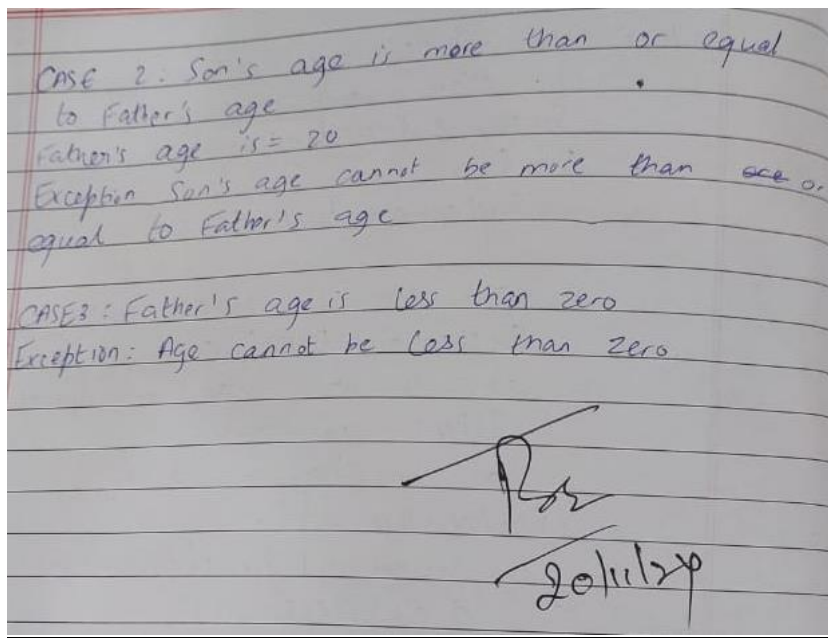 CASE 2: Son's age is more than or equal
to Father's age
Father's age is = 20
Exception Son's age cannot be more than
equal to Father's age
CASE3: Father's age is less than zero
Exception: Age cannot be less than zero
20/11/24